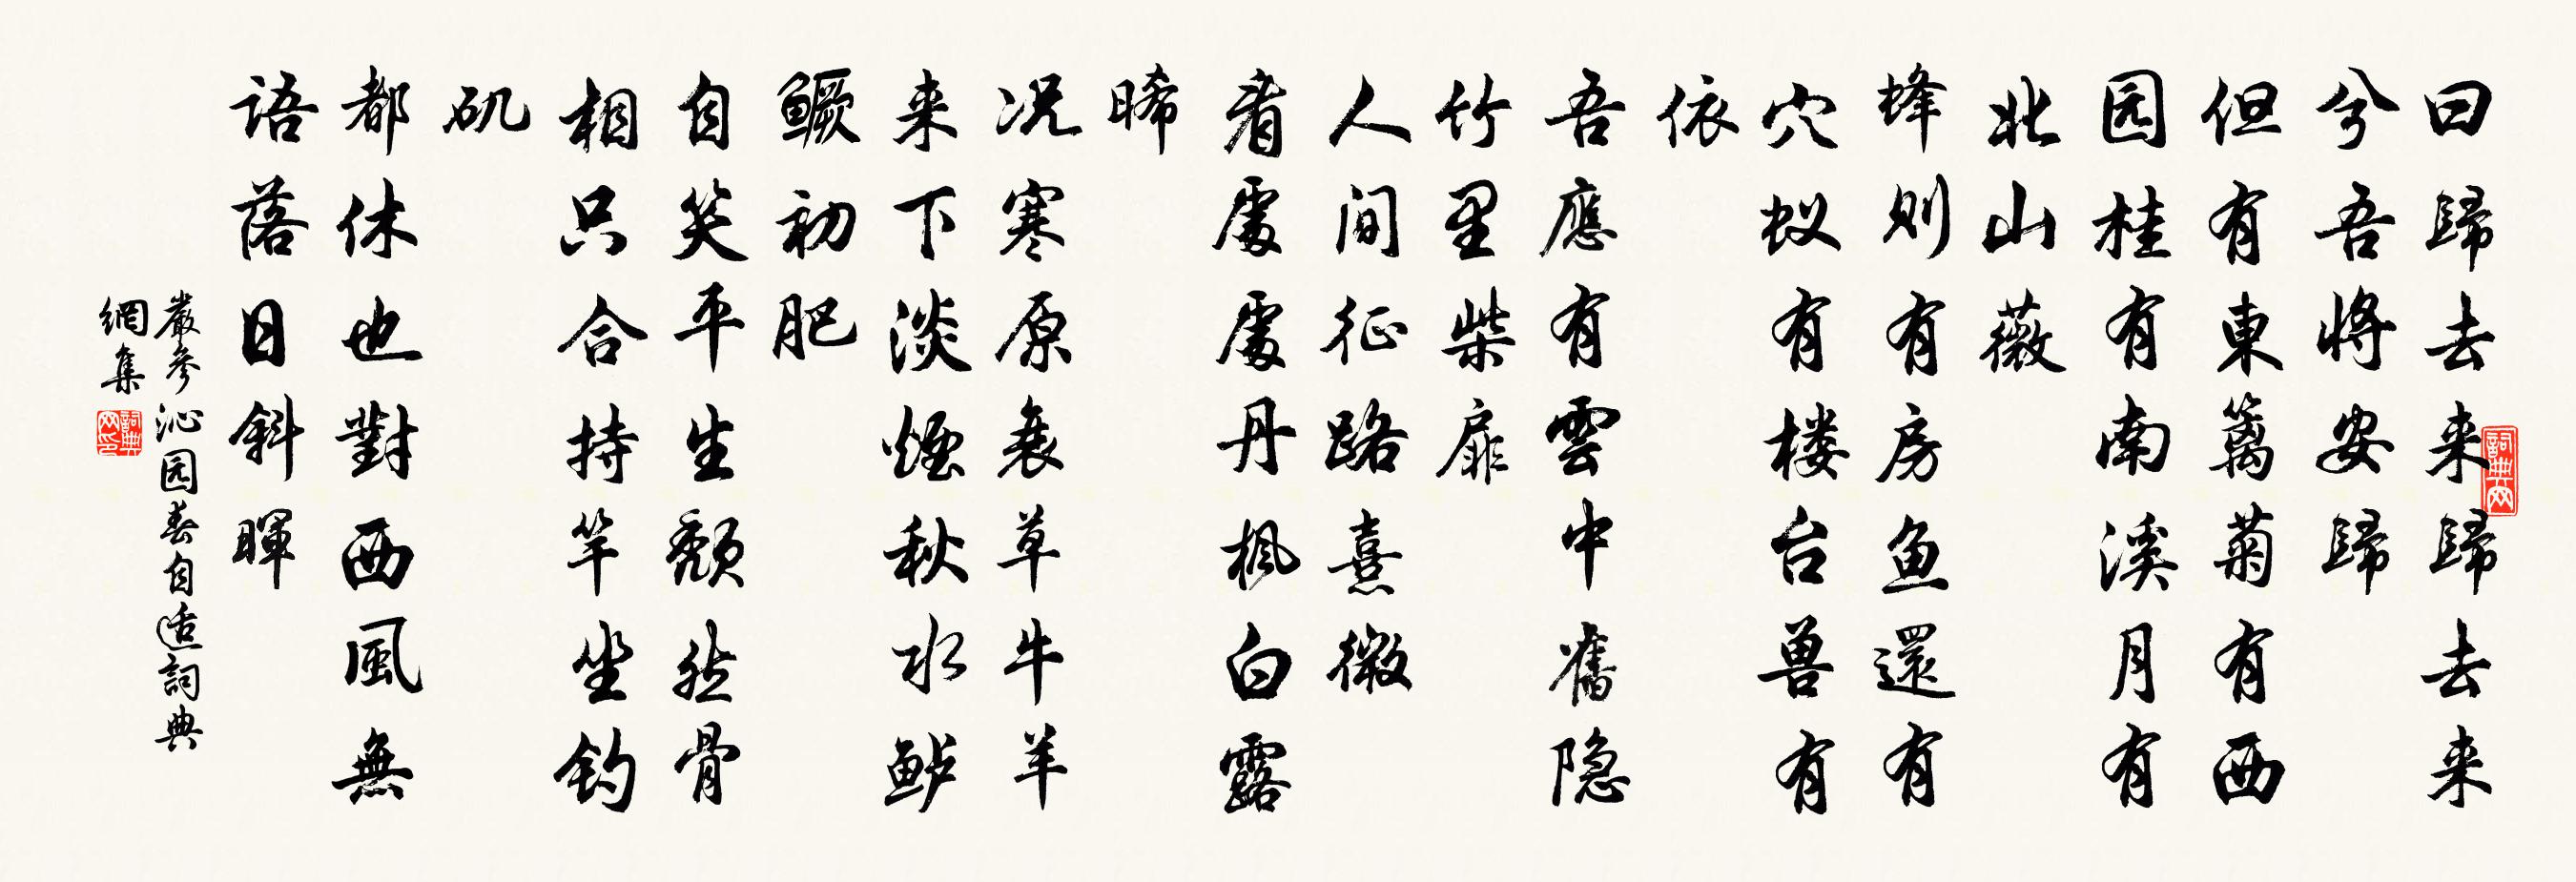 曰歸去来歸去来
兮吾将安歸
但有東篱菊有西
园桂有南溪月有
北山薇
蜂则有房鱼還有
穴蚁有楼台兽有
依
吾應有雲中舊隐
竹里柴扉
人间征路熹微
看處處丹楓白露
晞
况寒原衰草牛羊
来下淡煙秋水鲈
鳜初肥
自笑平生颓然骨
相只合持竿坐钓
矶
都休也對西風無
语落日斜暉
嚴参沁园春自适詞典
網集
詞典网
詞典网印